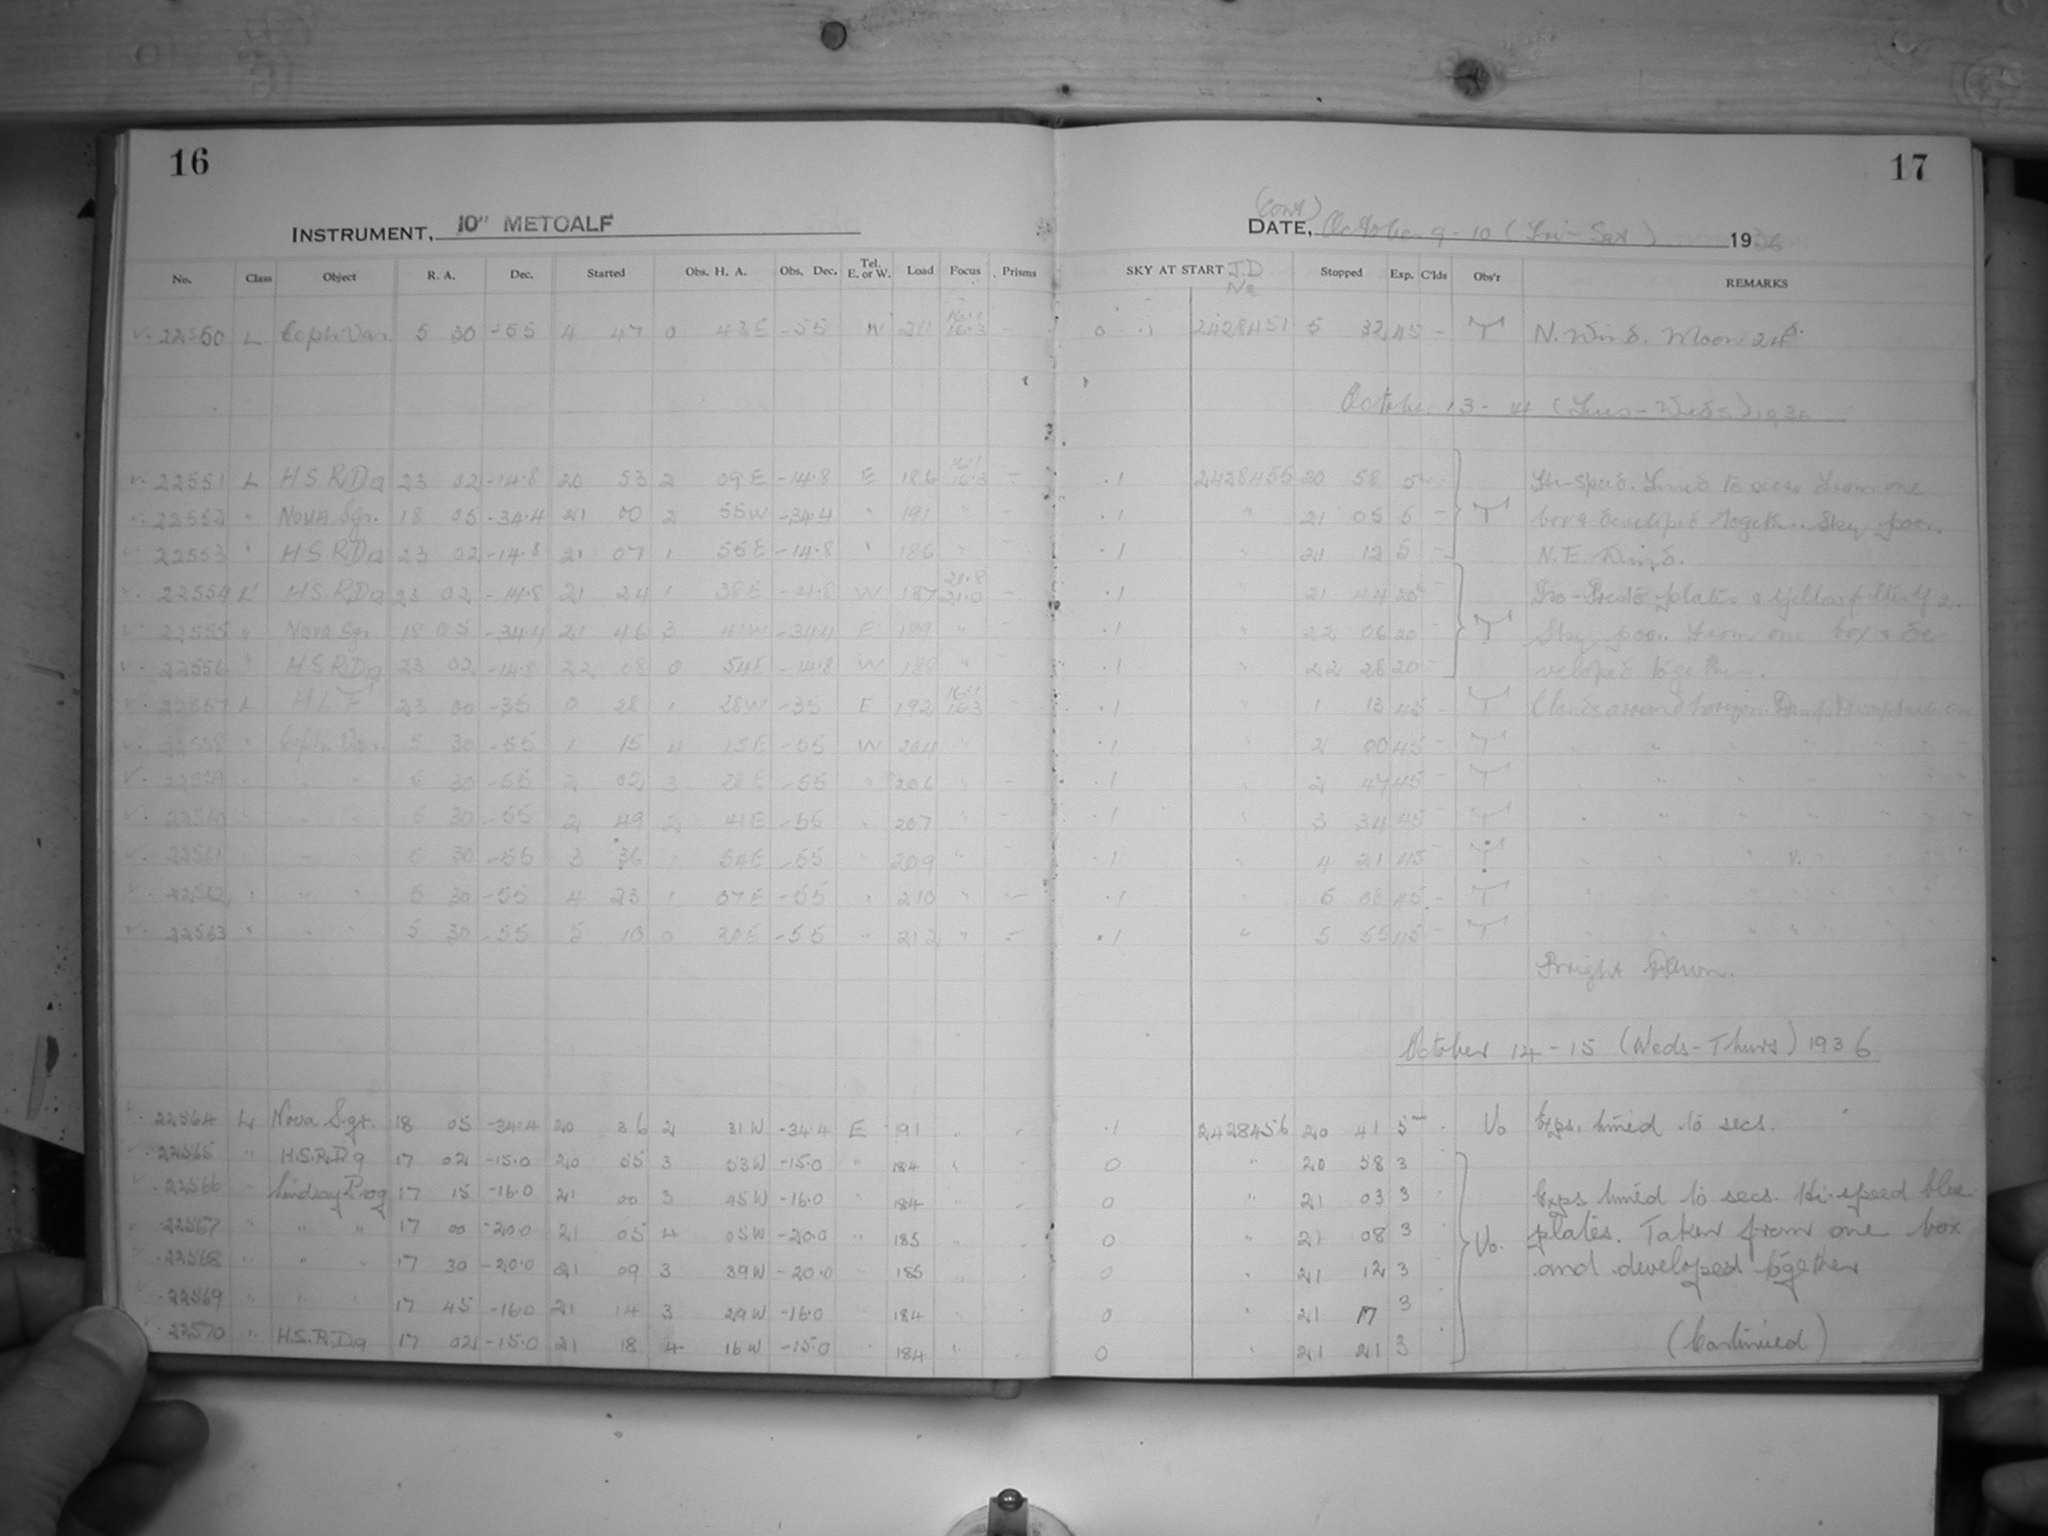 16
17
INSTRUMENT, 10" METCALF
(cont)
DATE, October 9-10 (Fri-Sat) 1936
No. Class Object R. A. Dec. Started Obs. H. A. Obs. Dec. Tel. E. or W. Load Focus Prisms SKY AT START J.D No Stopped Exp. C'lds Obs'r REMARKS
22550 L Ceph. Var. 5 30 -55 4 47 0 43E -55 W 211 16.1 16.3 - 0 .1 2428451 5 32 45 - T N. Wind. Moon 24d.
October 13-14 (Tues-Weds) 1936
22551 L H.S.R.D12 23 02 -14.8 20 53 2 09E -14.8 E 186 16.1 16.3 - .1 2428455 20 58 5m - Timed to secs. From one
22552 " Nova Sgr. 18 05 -34.4 21 00 2 55W -34.4 " 191 " - .1 " 21 05 5 - T box & developed together. Sky poor.
22553 " H.S.R.D12 23 02 -14.8 21 07 1 55E -14.8 " 186 " - .1 " 21 12 5 - N.E. Wind.
22554 L H.S.R.D12 23 02 -14.8 21 24 1 38E -14.8 W 187 21.8 21.0 - .1 " 21 44 20m - Iso-Presto plates & Yellow filter
22555 " Nova Sgr. 18 05 -34.4 21 46 3 41W -34.4 E 189 " - .1 " 22 06 20 - T Sky poor. From one box & de
22556 " H.S.R.D12 23 02 -14.8 22 08 0 54E -14.8 W 188 " - .1 " 22 28 20 - veloped together.
22557 L H L T 23 00 -35 0 28 1 28W -35 E 192 16.1 16.3 - .1 " 1 13 45 - T Clouds around horizon.
22558 " Ceph. Var. 5 30 -55 1 15 4 15E -55 W 204 " - .1 " 2 00 45 - T " " " "
22559 " " " 5 30 -55 2 02 3 28E -55 " 206 " - .1 " 2 47 45 - T " " " "
22560 " " " 5 30 -55 2 49 2 41E -55 " 207 " - .1 " 3 34 45 - T " " " "
22561 " " " 5 30 -55 3 36 1 54E -55 " 209 " - .1 " 4 21 45 - T " " " "
22562 " " " 5 30 -55 4 23 1 07E -55 " 210 " - .1 " 5 08 45 - T " " " "
22563 " " " 5 30 -55 5 10 0 20E -55 " 212 " - .1 " 5 55 45 - T " " " "
Bright Dawn.
October 14-15 (Weds-Thurs) 1936
22564 L Nova Sgr. 18 05 -34.4 20 36 2 31W -34.4 E 191 " - .1 2428456 20 41 5m - Vo Exps. timed to secs.
22565 " H.S.R.D9 17 02 -15.0 20 55 3 53W -15.0 " 184 " - 0 " 20 58 3
22566 " Lindsay Prog 17 15 -16.0 21 00 3 45W -16.0 " 184 " - 0 " 21 03 3 Exps timed to secs. Hi-speed blue
22567 " " " 17 00 -20.0 21 05 4 05W -20.0 " 185 " - 0 " 21 08 3 Vo. plates. Taken from one box
22568 " " " 17 30 -20.0 21 09 3 39W -20.0 " 185 " - 0 " 21 12 3 and developed together
22569 " " " 17 45 -16.0 21 14 3 29W -16.0 " 184 " - 0 " 21 17 3
22570 " H.S.R.D9 17 02 -15.0 21 18 4 16W -15.0 " 184 " - 0 " 21 21 3 (Continued)